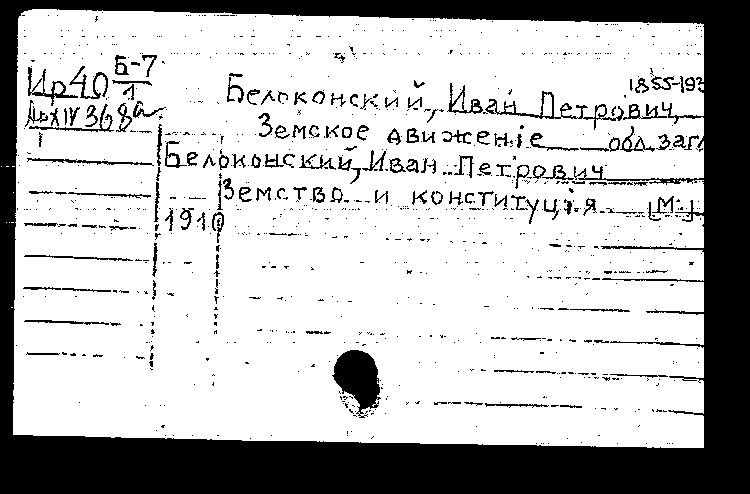 Ир40 Б-7/1
1855-193
Белоконский, Иван Петрович,
ДрXIV 368а
Земское движеніе обл. загл
1
Белоконский, Иван Петрович
Земство и конституція [М.]
1910